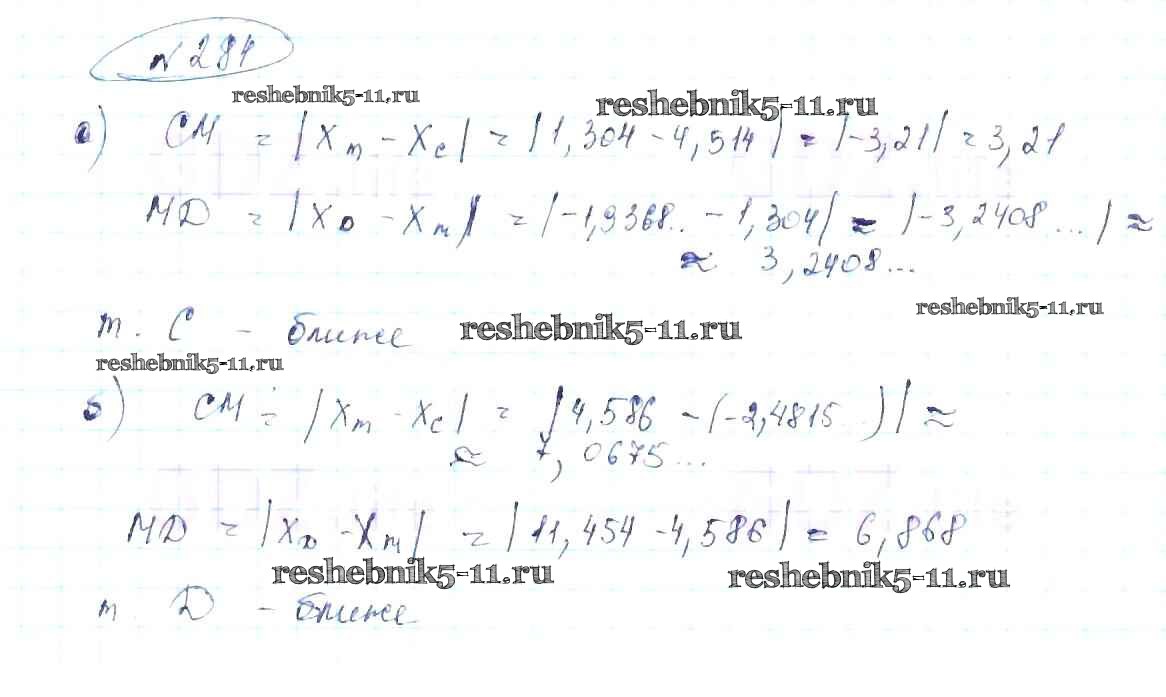 № 281
reshebnik5-11.ru
reshebnik5-11.ru
а) CM = |Xm - Xc| = |1,304 - 4,514| = |-3,21| = 3,21
MD = |XD - Xm| = |-1,9368.. - 1,304| ≈ |-3,2408...| ≈
≈ 3,2408...
reshebnik5-11.ru
т. C - ближе
reshebnik5-11.ru
reshebnik5-11.ru
б) CM = |Xm - Xc| = |4,586 - (-2,4815..)| ≈
≈ 7,0675...
MD = |XD - Xm| = |11,454 - 4,586| = 6,868
reshebnik5-11.ru
reshebnik5-11.ru
т. D - ближе